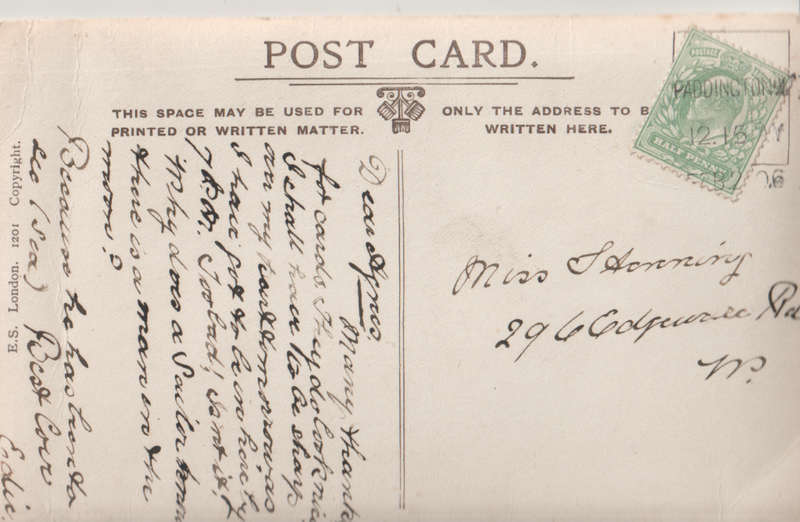 POST CARD.
THIS SPACE MAY BE USED FOR
PRINTED OR WRITTEN MATTER.
ONLY THE ADDRESS TO B
WRITTEN HERE.
PADDINGTON W
12.15
06
HALF PENNY
POSTAGE
Miss Henning
296 Edgware Rd
W.
Dear Agnes
Many thanks
for cards. They do look nice
I shall have to be sharp
on my hand tomorrow as
I have got to be in here by
7 Too bad! Isnt it?
Why does a Sailor know
there is a man in the
moon?
Because he has been to
see (sea) Best Love
E.S. London. 1201 Copyright.